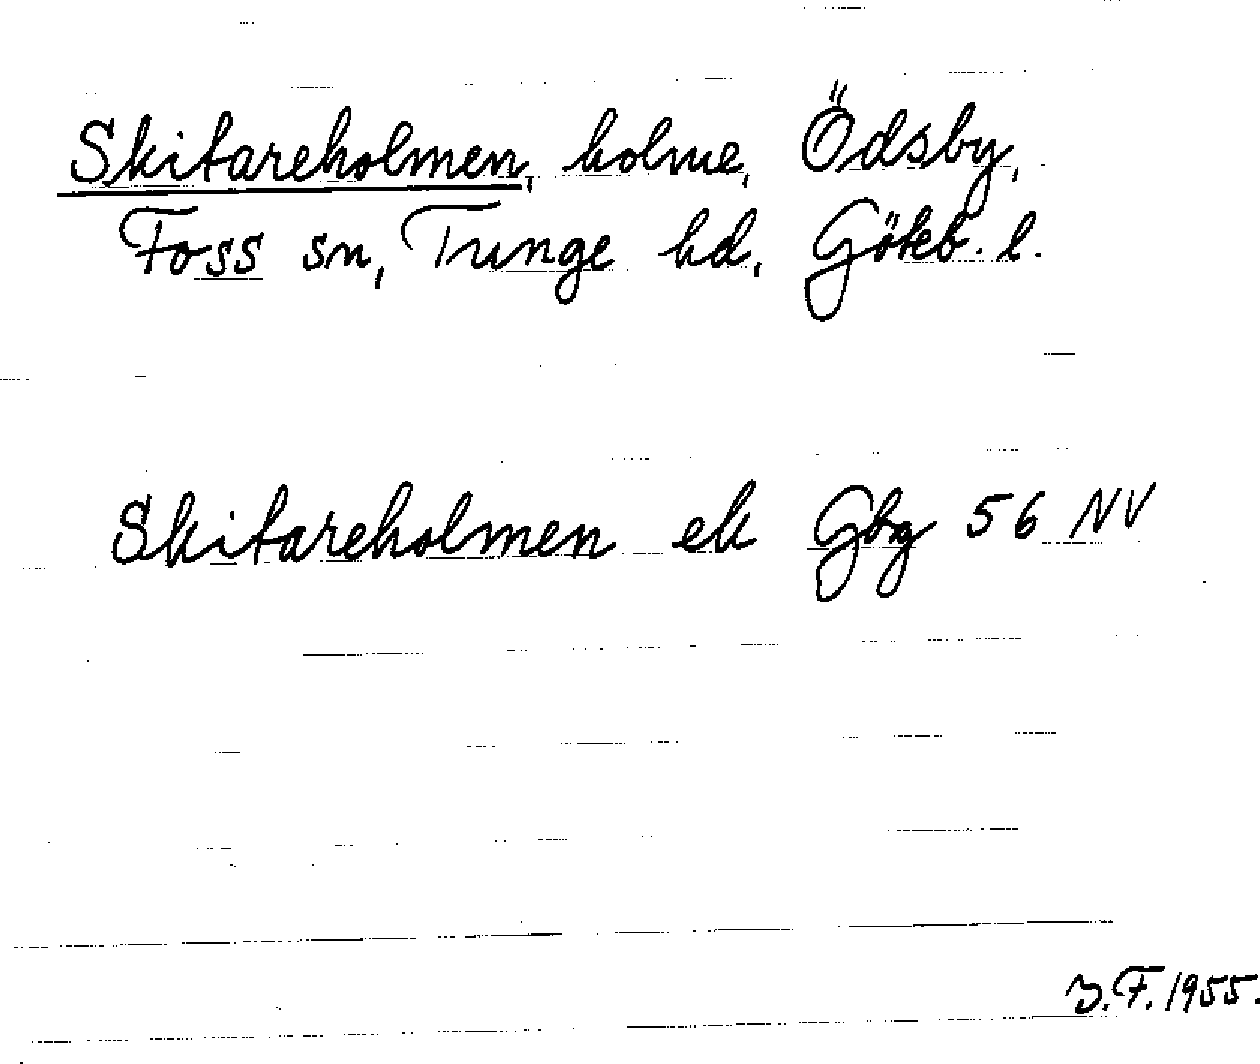 Skitareholmen, holme, Ödsby,
Foss sn, Tunge hd, Göteb. l.
Skitareholmen ek Gbg 56 NV
J.F. 1955.